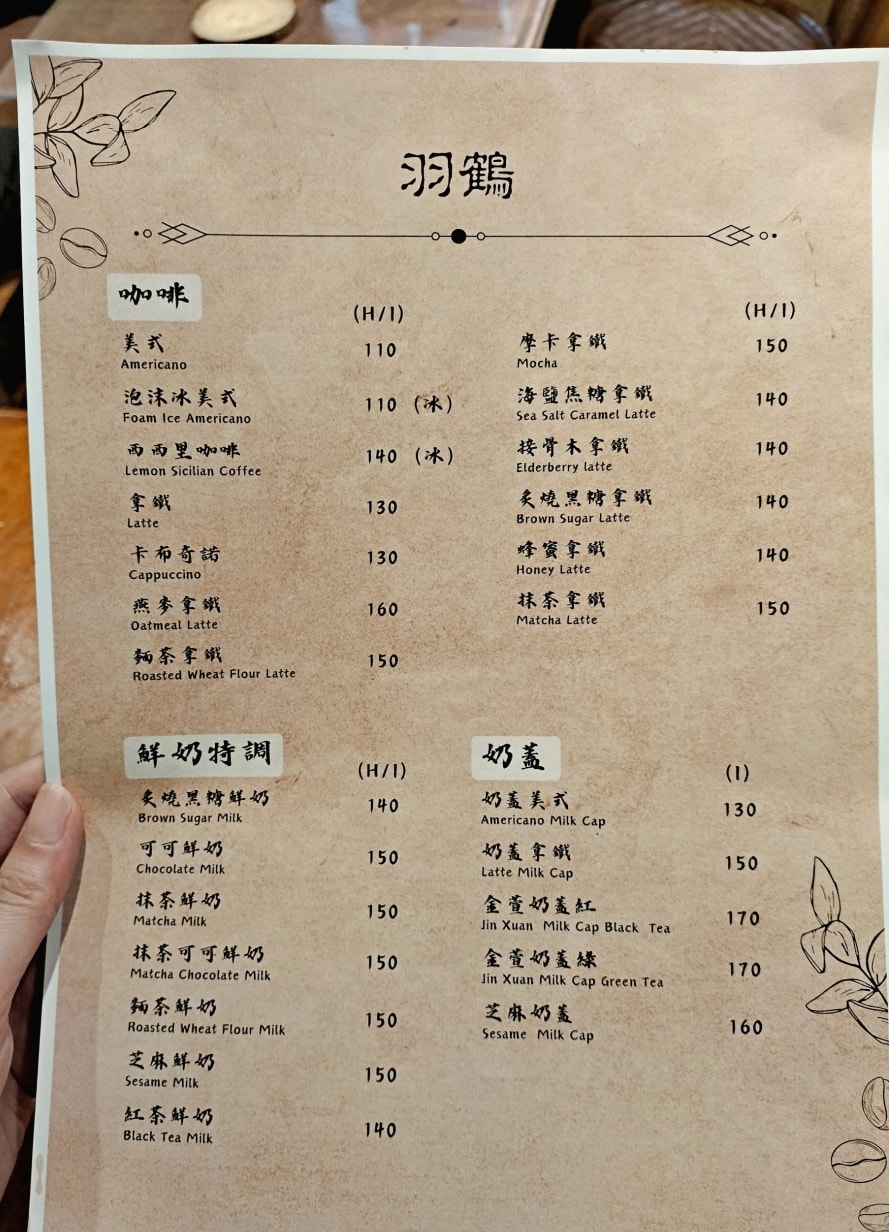 羽鶴
咖啡
(H/I)
美式 110
Americano
泡沫冰美式 110 (冰)
Foam Ice Americano
西西里咖啡 140 (冰)
Lemon Sicilian Coffee
拿鐵 130
Latte
卡布奇諾 130
Cappuccino
燕麥拿鐵 160
Oatmeal Latte
麵茶拿鐵 150
Roasted Wheat Flour Latte
(H/I)
摩卡拿鐵 150
Mocha
海鹽焦糖拿鐵 140
Sea Salt Caramel Latte
接骨木拿鐵 140
Elderberry latte
炙燒黑糖拿鐵 140
Brown Sugar Latte
蜂蜜拿鐵 140
Honey Latte
抹茶拿鐵 150
Matcha Latte
鮮奶特調
(H/I)
炙燒黑糖鮮奶 140
Brown Sugar Milk
可可鮮奶 150
Chocolate Milk
抹茶鮮奶 150
Matcha Milk
抹茶可可鮮奶 150
Matcha Chocolate Milk
麵茶鮮奶 150
Roasted Wheat Flour Milk
芝麻鮮奶 150
Sesame Milk
紅茶鮮奶 140
Black Tea Milk
奶蓋
(I)
奶蓋美式 130
Americano Milk Cap
奶蓋拿鐵 150
Latte Milk Cap
金萱奶蓋紅 170
Jin Xuan Milk Cap Black Tea
金萱奶蓋綠 170
Jin Xuan Milk Cap Green Tea
芝麻奶蓋 160
Sesame Milk Cap